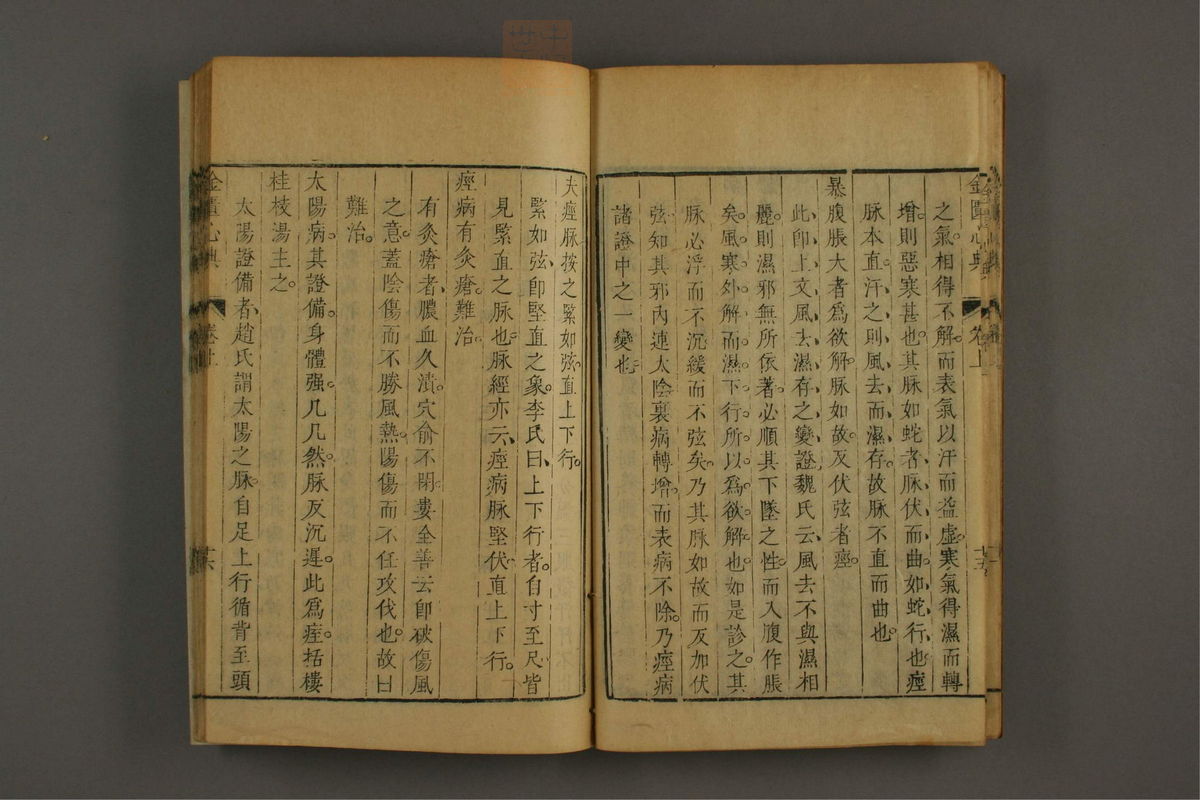 金匱心典
卷上
十五
之氣相得不解而表氣以汗而益虛寒氣得濕而轉
增則惡寒甚也其脉如蛇者脉伏而曲如蛇行也痙
脉本直汗之則風去而濕存故脉不直而曲也
暴腹脹大者爲欲解脉如故反伏弦者痙
此卽上文風去濕存之變證魏氏云風去不與濕相
麗則濕邪無所依著必順其下墜之性而入腹作脹
矣風寒外解而濕下行所以爲欲解也如是診之其
脉必浮而不沉緩而不弦矣乃其脉如故而反加伏
弦知其邪內連太陰裏病轉增而表病不除乃痙病
諸證中之一變也
夫痙脉按之緊如弦直上下行
緊如弦卽堅直之象李氏曰上下行者自寸至尺皆
見緊直之脉也脉經亦云痙病脉堅伏直上下行
痙病有灸瘡難治
有灸瘡者膿血久潰穴俞不閉婁全善云卽破傷風
之意蓋陰傷而不勝風熱陽傷而不任攻伐也故曰
難治
太陽病其證備身體强几几然脉反沉遲此爲痙括樓
桂枝湯主之
太陽證備者趙氏謂太陽之脉自足上行循背至頭
金匱心典
卷上
十六